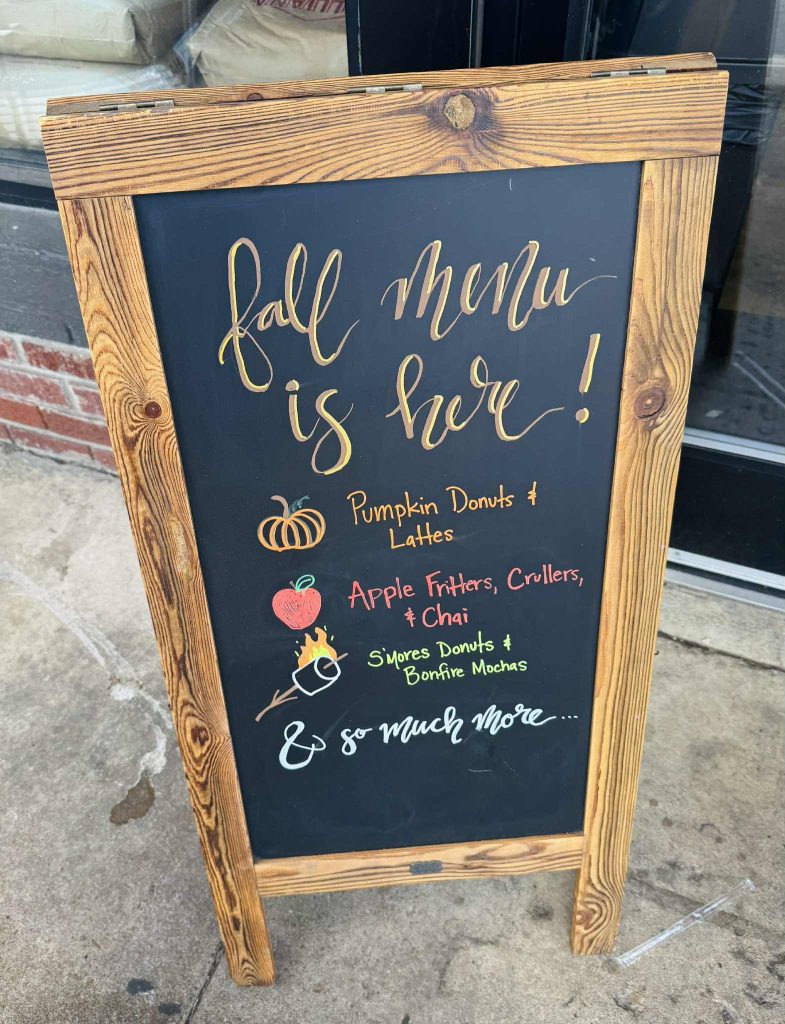 fall menu
is here!
Pumpkin Donuts &
Lattes
Apple Fritters, Crullers,
& Chai
S'mores Donuts &
Bonfire Mochas
& so much more...